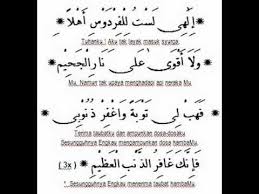 إِلٰهِي لَسْتُ لِلْفِرْدَوْسِ أَهْلًا
Tuhanku ! Aku tak layak masuk syurga.
وَلَا أَقْوَى عَلَى نَارِ الْجَحِيْمِ
Mu. Namun tak upaya menghadapi api neraka Mu.
فَهَبْ لِي تَوْبَةً وَاغْفِرْ ذُنُوْبِي
Terima taubatku dan ampunkan dosa-dosaku
Sesungguhnya Engkau mengampunkan dosa hambaMu.
فَإِنَّكَ غَافِرُ الذَّنْبِ الْعَظِيْمِ (3x)
Sesungguhnya Engkau menerima taubat hambaMu